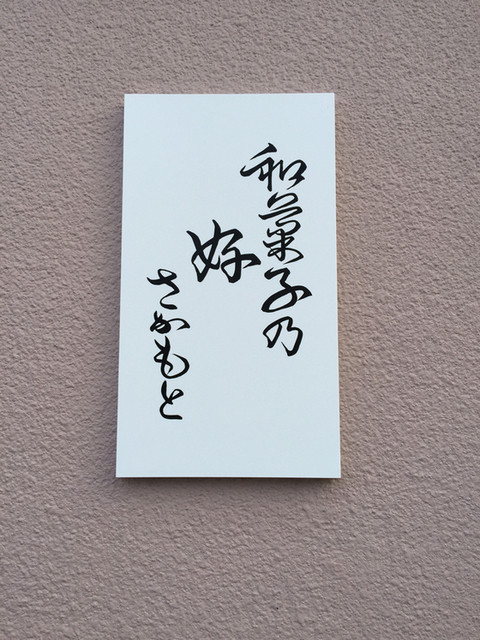 和菓子乃
好
さかもと